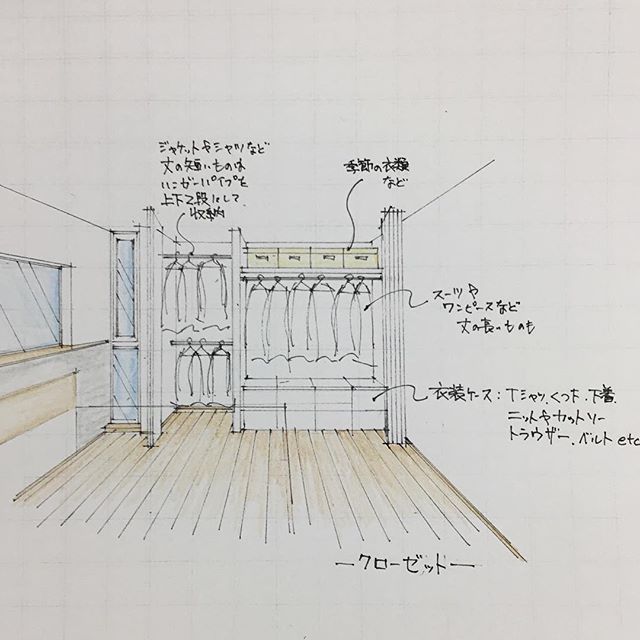 ジャケットやシャツなど
丈の短いものは
ハンガーパイプを
上下2段にして
収納
季節の衣類
など
スーツや
ワンピースなど
丈の長いものも
衣装ケース：Tシャツ、くつ下、下着、
ニットやカットソー
トラウザー、ベルト etc
ークローゼットー